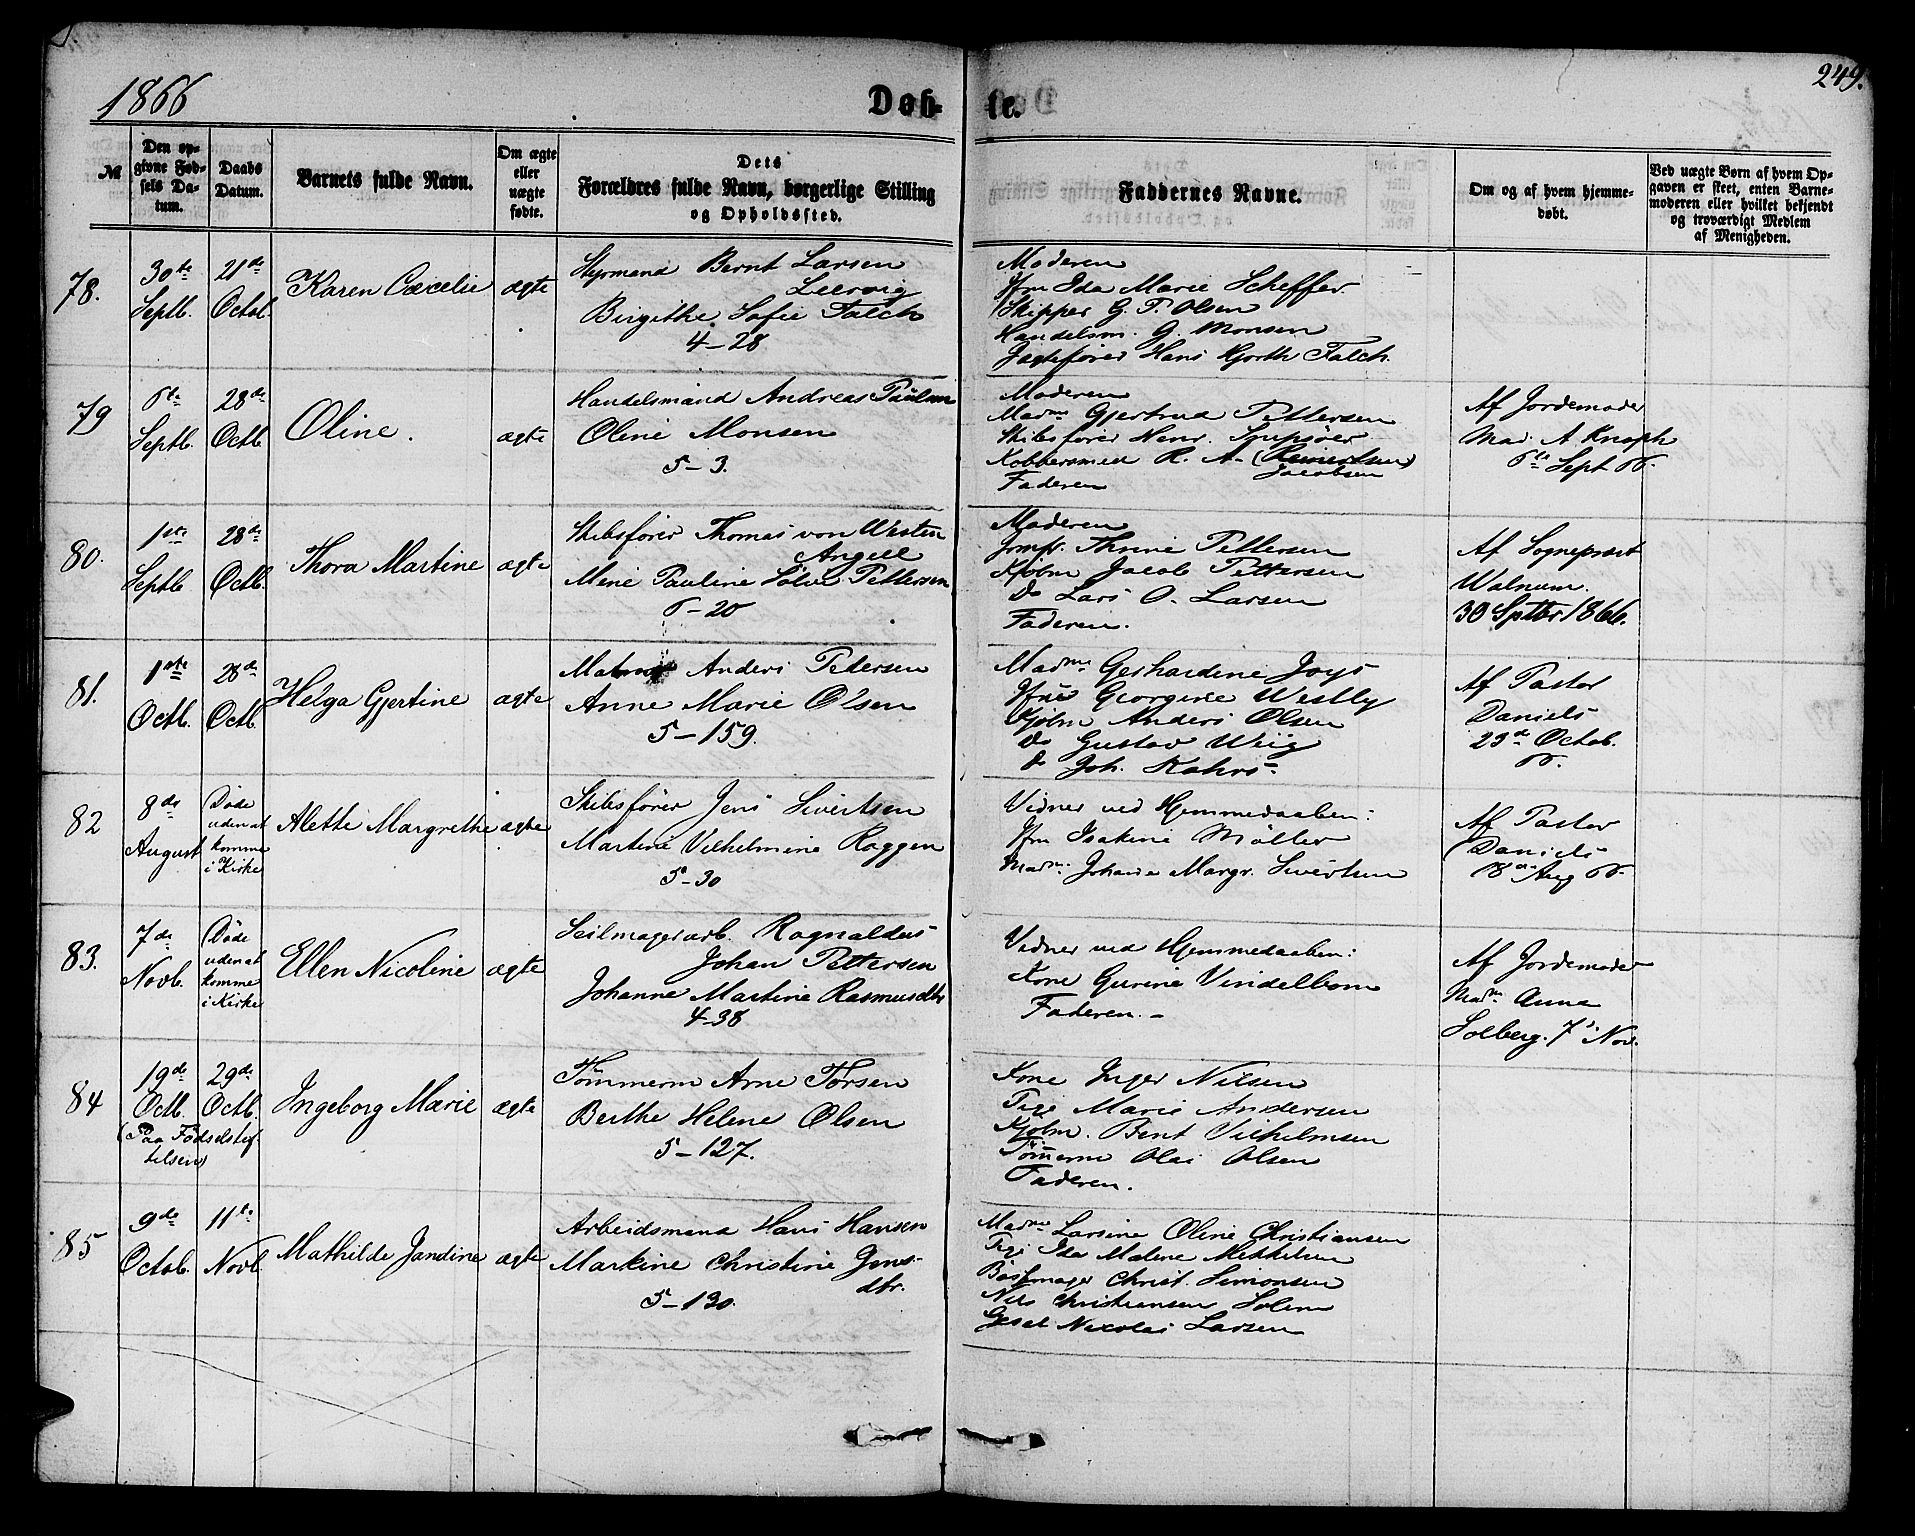 1866
Døb-
te.
249.
№
Den op-
givne Fød-
sels Da-
tum.
Daabs
Datum.
Barnets fulde Navn.
Om ægte
eller
uægte
fødte.
Dets
Forældres fulde Navn, borgerlige Stilling
og Opholdssted.
Faddernes Navne.
Om og af hvem hjemme-
døbt.
Ved uægte Børn af hvem Op-
gaven er skeet, enten Barne-
moderen eller hvilket bekjendt
og troværdigt Medlem
af Menigheden.
78.
30te
Septb.
21de
Octob.
Karen Cæcelie
ægte
Styrmand Bernt Larsen
Leervig
Birgithe Sofie Falch
4-28
Moderen
Jfru Ida Marie Scheffer.
Skipper G. T. Olsen
Handelsm. G. Monsen
Jagtefører Hans Hjorth Falch.
79
6te
Septb.
28de
Octb.
Oline.
ægte
Handelsmand Andreas
Oline Monsen
5-3.
Moderen
Madme Gjertrud Pettersen
Skibsfører Henr.
Kobbersmed R. A. (Reinertsen)
Jacobsen
Faderen
Af Jordemoder
Mad. A Knoph
6te Sept 66.
80.
1ste
Septb
28de
Octb.
Thora Martine
ægte
Skibsfører Thomas von Westen
Angell
Mine Pauline Pettersen
6-20
Moderen
Jomfr. Thrine Pettersen
Kjøbm Jacob Pettersen
Do Lars O. Larsen
Faderen.
Af Sognepræst
Walnum.
30 Sptbr 1866.
81.
1ste
Octb.
28de
Octb.
Helga Gjertine
ægte
Matros Anders Petersen
Anne Marie Olsen
5-159.
Madme Gerhardine Joys
Jfru Georgine Westby
Kjøbm Anders Olsen
Do Gustav Wiig
do Joh. Kahrs.
Af Pastor
Daniels
23de Octob.
66.
82
8de
August
(Døde
uden at
komme
i Kirke
Alette Margrethe
ægte
Skibsfører Jens Sivertsen
Martine Vilhelmine Roggen
5-30
Vidner ved Hjemmedaaben:
Jfru Isakine Möller
Madme Johanne Margr. Sivertsen
Af Pastor
Daniels
18de Aug 66.
83.
7de
Novb.
(Døde
uden at
komme
i Kirke
Ellen Nicoline
ægte
Seilmagerarb. Ragnaldus
Johan Pettersen
Johanne Martine Rasmusdtr
4-38
Vidner ved Hjemmedaaben:
Kone Gurine Vindelbom
Faderen.-
Af Jordemoder
Madme Anna
Solberg. 7de Nov.
84
19de
Octb.
29de
Octb.
(Paa Fødselsstif-
telsen)
Ingeborg Marie
ægte
Tömmerm Arne Torsen
Berthe Helene Olsen
5-127.
Kone Inger Nilsen
Pige Marie Andersen
Kjøbm. Bent Vilhelmsen
Tömmerm Olai Olsen
Faderen.
85
9de
Octob.
11te
Novb.
Mathilde Jandine
ægte
Arbeidsmand Hans Hansen
Martine Christine Jens-
dtr.
5-130.
Madme Larsine Oline Christiansen
Pige Ida Malene Mikkelsen
Bøssmager Christ. Simonsen
Nils Christiansen Solem
Gesel Nicolai Larsen